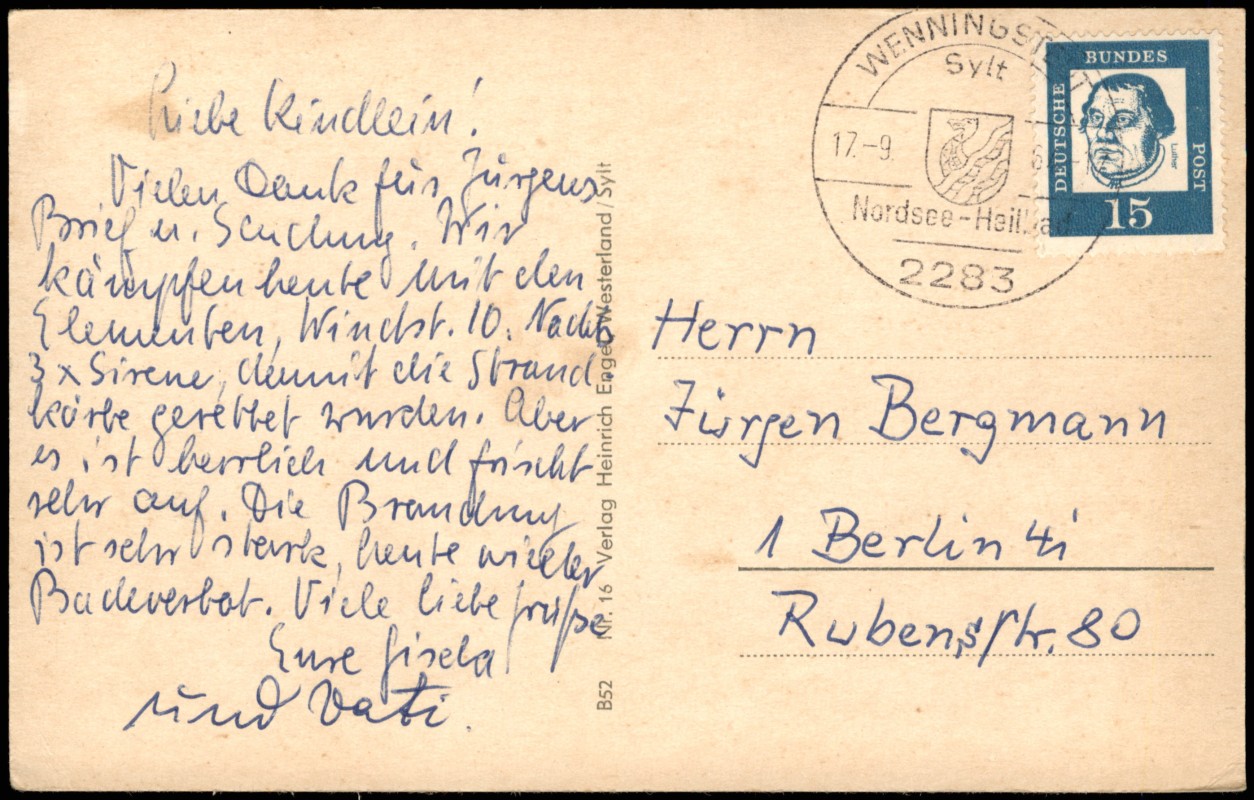 Liebe Kindlein!
Vielen Dank für Jürgens
Brief u. Sendung. Wir
kämpfen heute mit den
Elementen, Windst. 10. Nachts
3 x Sirene, damit die Strand-
körbe gerettet wurden. Aber
es ist herrlich und frischt
sehr auf. Die Brandung
ist sehr stark, heute wieder
Badeverbot. Viele liebe Grüße
Eure Gisela
und Vati.
B52 Nr. 16 Verlag Heinrich Engel, Westerland / Sylt
WENNINGSTEDT
Sylt
17.-9.
Nordsee-Heilbad
2283
DEUTSCHE
BUNDES
POST
Luther
15
Herrn
Jürgen Bergmann
1 Berlin 41
Rubensstr. 80